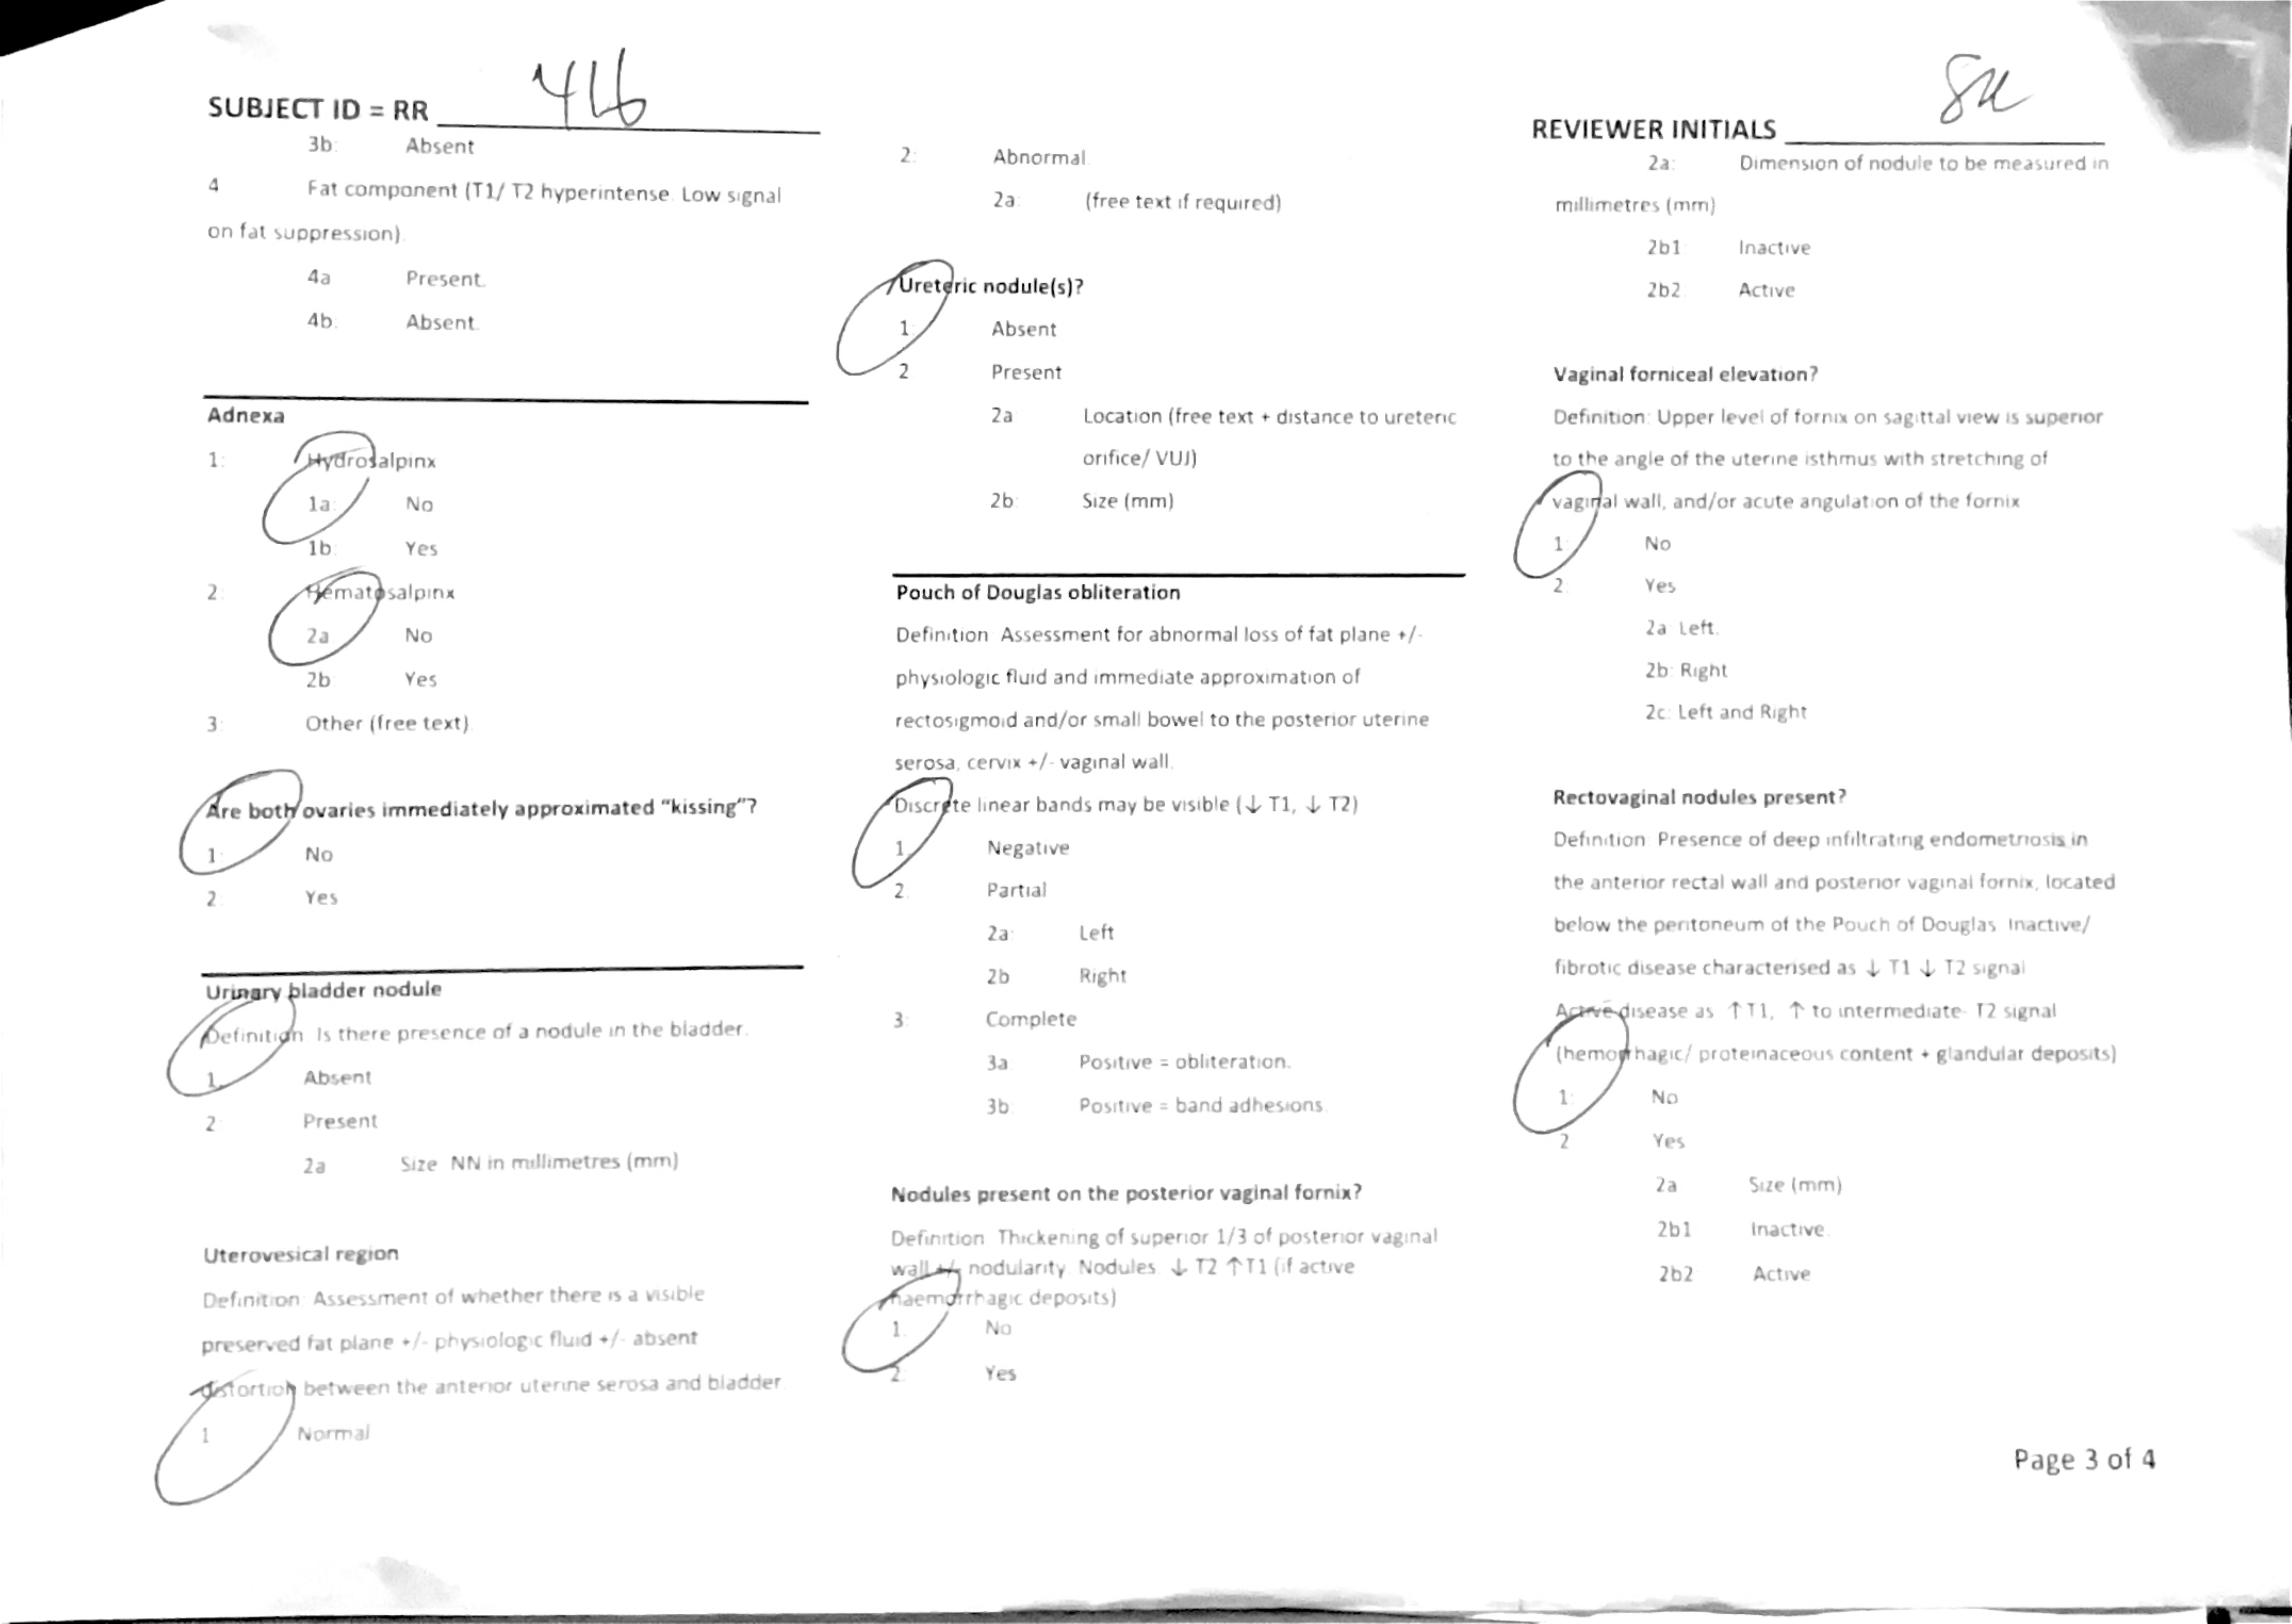 SUBJECT ID = RR 416
3b: Absent
4 Fat component (T1/ T2 hyperintense. Low signal
on fat suppression).
4a Present.
4b: Absent.
Adnexa
1: Hydrosalpinx
1a: No
1b: Yes
2: Hematosalpinx
2a No
2b Yes
3: Other (free text)
Are both ovaries immediately approximated "kissing"?
1: No
2 Yes
Urinary bladder nodule
Definition Is there presence of a nodule in the bladder.
1. Absent
2 Present
2a Size NN in millimetres (mm)
Uterovesical region
Definition Assessment of whether there is a visible
preserved fat plane +/- physiologic fluid +/- absent
distortion between the anterior uterine serosa and bladder
1 Normal
2: Abnormal
2a: (free text if required)
Ureteric nodule(s)?
1: Absent
2 Present
2a Location (free text + distance to ureteric
orifice/ VUJ)
2b: Size (mm)
Pouch of Douglas obliteration
Definition Assessment for abnormal loss of fat plane +/-
physiologic fluid and immediate approximation of
rectosigmoid and/or small bowel to the posterior uterine
serosa, cervix +/- vaginal wall.
Discrete linear bands may be visible (↓ T1, ↓ T2)
1. Negative
2. Partial
2a: Left
2b Right
3: Complete
3a Positive = obliteration.
3b: Positive = band adhesions.
Nodules present on the posterior vaginal fornix?
Definition Thickening of superior 1/3 of posterior vaginal
wall +/- nodularity. Nodules ↓ T2 ↑T1 (if active
haemorrhagic deposits)
1. No
2. Yes
REVIEWER INITIALS
2a: Dimension of nodule to be measured in
millimetres (mm)
2b1 Inactive
2b2 Active
Vaginal forniceal elevation?
Definition: Upper level of fornix on sagittal view is superior
to the angle of the uterine isthmus with stretching of
vaginal wall, and/or acute angulation of the fornix
1: No
2. Yes
2a Left.
2b: Right
2c: Left and Right
Rectovaginal nodules present?
Definition Presence of deep infiltrating endometriosis in
the anterior rectal wall and posterior vaginal fornix, located
below the peritoneum of the Pouch of Douglas Inactive/
fibrotic disease characterised as ↓ T1 ↓ T2 signal
Active disease as ↑T1, ↑ to intermediate- T2 signal
(hemorrhagic/ proteinaceous content + glandular deposits)
1: No
2 Yes
2a Size (mm)
2b1 Inactive.
2b2 Active
Page 3 of 4